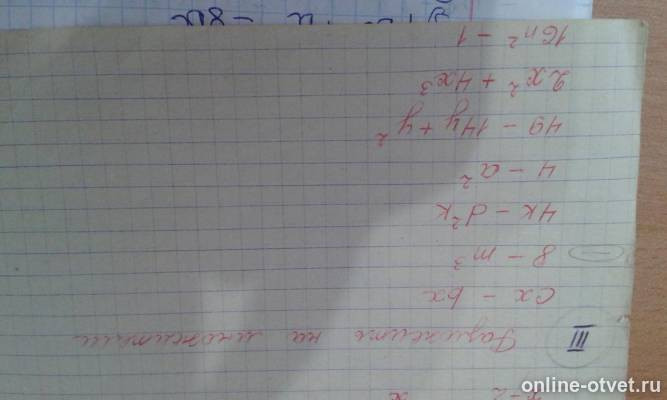 III Разложите на множители
cx - bx
8 - m³
4k - d²k
4 - a²
49 - 14y + y²
2x² + 4x³
16n² - 1
online-otvet.ru